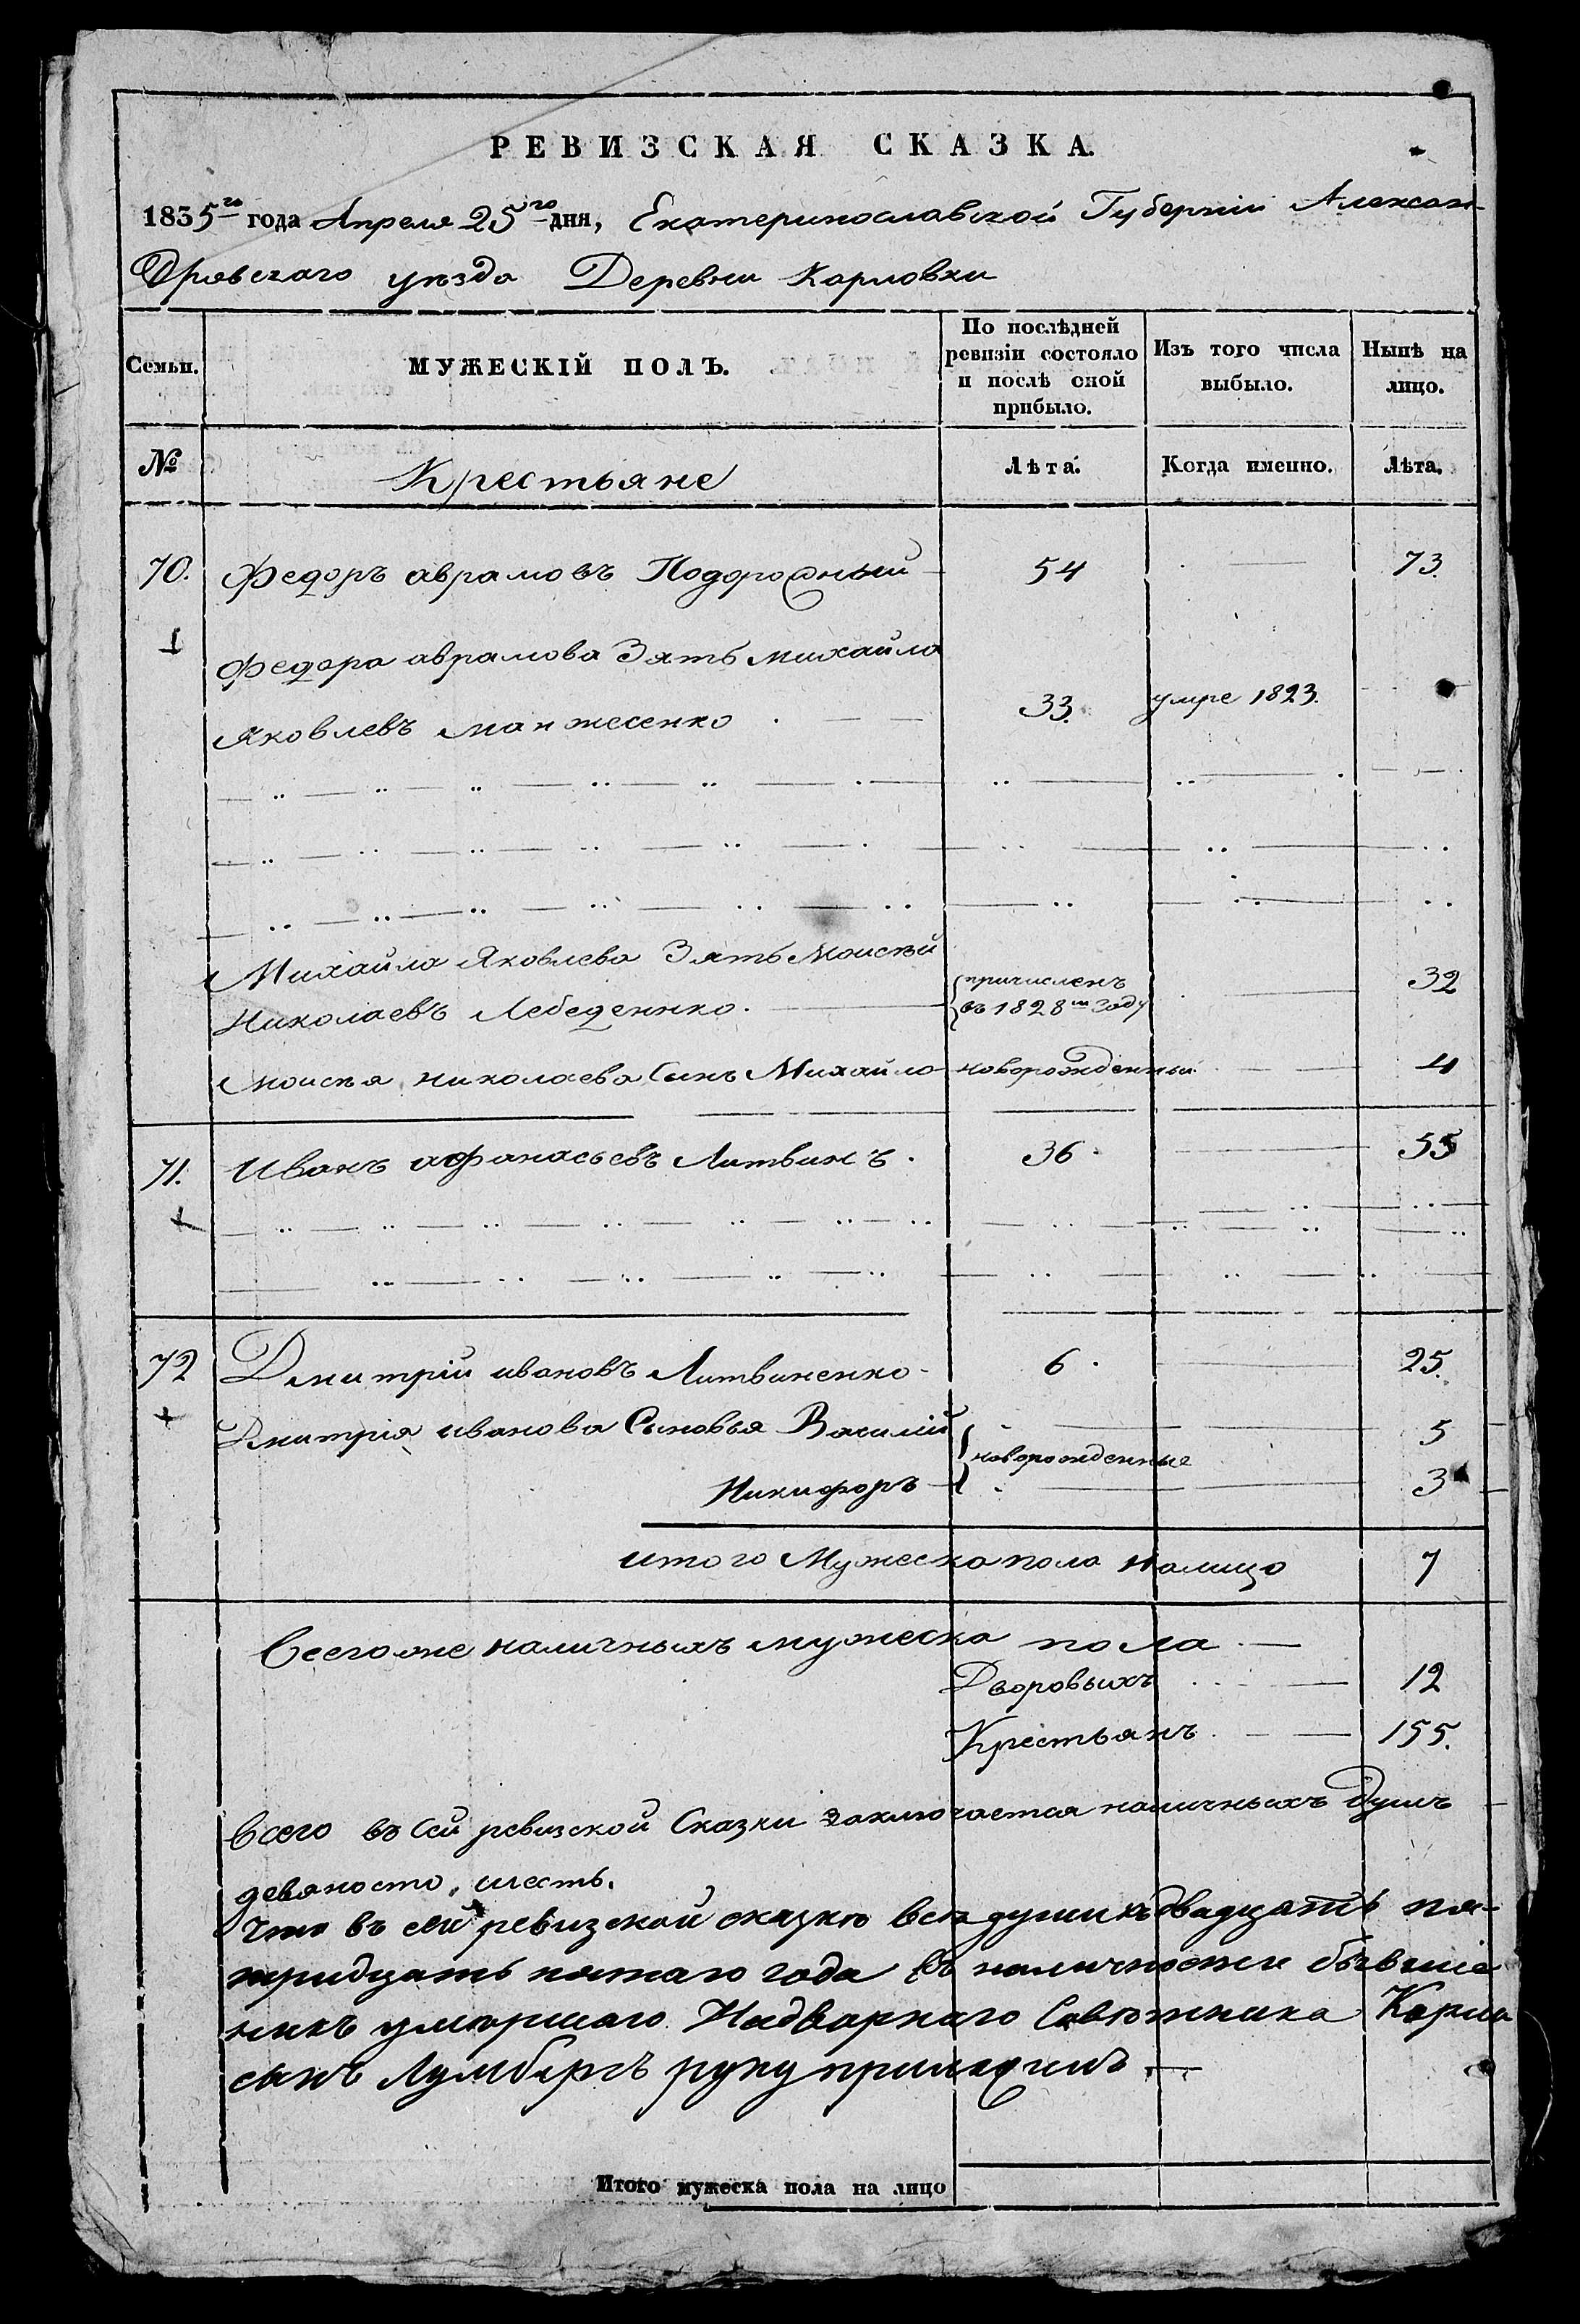 РЕВИЗСКАЯ СКАЗКА.
1835го года Апреля 25го дня, Екатеринославской Губернии Алексан-
дровскаго уезда Деревни Карловки
Семьи. МУЖЕСКІЙ ПОЛЪ. По послѣдней ревизіи состояло и послѣ оной прибыло. Изъ того числа выбыло. Нынѣ на лицо.
№ Крестьяне Лѣта. Когда именно. Лѣта.
70. Федоръ аврамовъ Подорожный 54 73.
Федора аврамова Зять михайла
Яковлевъ манжесенко 33. умре 1823.
Михайла Яковлева Зять Моисѣй
Николаевъ Лебеденко. причисленъ въ 1828м году 32
Моисѣя николаева Сынъ Михайло новорожденный 4
71. Иванъ афанасьевъ Литвинъ. 36 55
72 Дмитрій ивановъ Литвиненко 6 25.
Дмитрія иванова Сыновья Василій новорожденные 5
Никифоръ 3
итого Мужеска пола налицо 7
Всего же наличныхъ мужеска пола
Дворовыхъ 12
Крестьянъ 155.
Всего въ сей ревизской Сказки заключается наличныхъ душъ
девяносто, шесть.
Что въ сей ревизской сказкю все души къ двадцать пя-
тридцать пятаго года въ наличности бывшіе
никъ умершаго Надворнаго Совютника Карла
сынъ Лумбергъ руку приложилъ
Итого мужеска пола на лицо